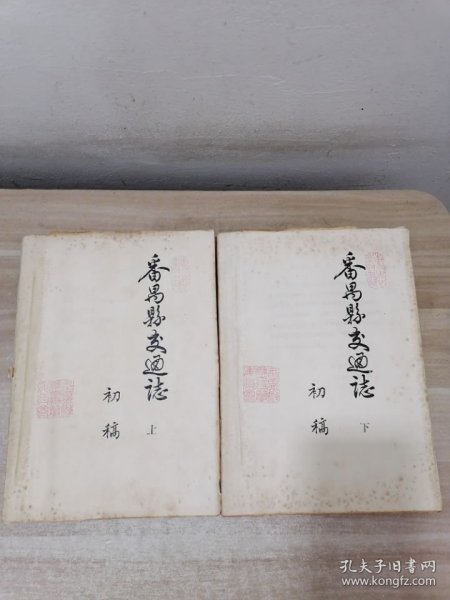 番禺縣交通誌
初稿
上
番禺縣交通誌
初稿
下
孔夫子旧书网
www.kongfz.com